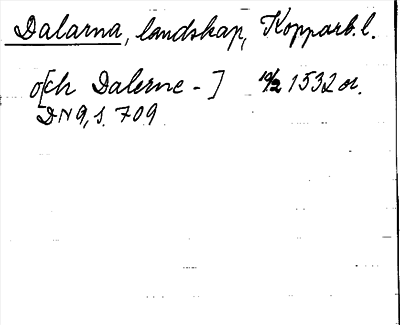 Dalarna, landskap, Kopparb. l.
o[ch Dalerne - ] 10/2 1532 or.
DN 9, s. 709